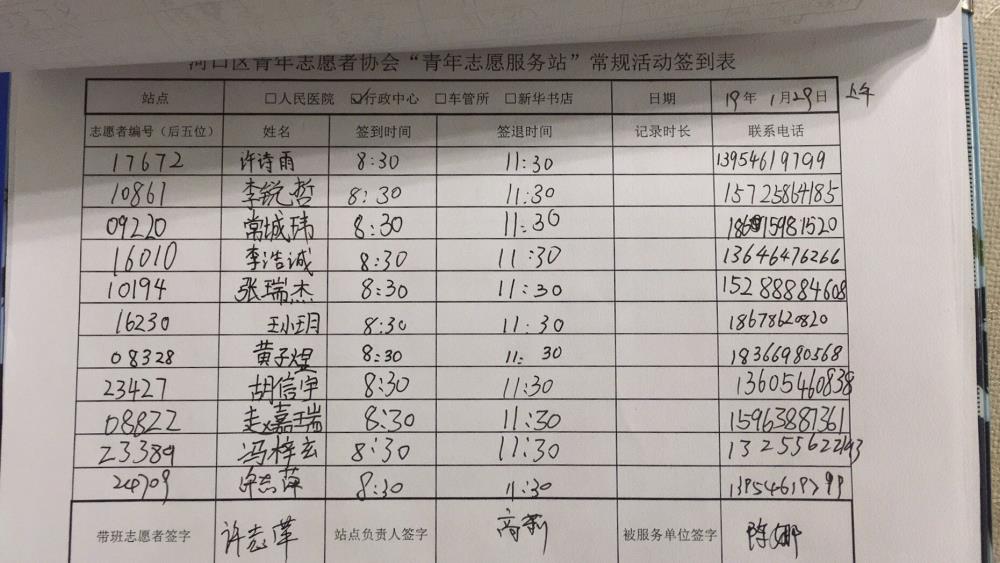 河口区青年志愿者协会“青年志愿服务站”常规活动签到表
站点 □人民医院 ☑行政中心 □车管所 □新华书店 日期 19年1月29日 上午
志愿者编号（后五位） 姓名 签到时间 签退时间 记录时长 联系电话
17672 许诗雨 8:30 11:30 13954619799
10861 李锐哲 8:30 11:30 15725864185
09220 常城玮 8:30 11:30
16010 李浩诚 8:30 11:30 13646476266
10194 张瑞杰 8:30 11:30 15288884608
16230 王小玥 8:30 11:30 18678620820
08328 黄子煜 8:30 11:30 18366980568
23427 胡信宇 8:30 11:30 13605460838
08822 赵嘉瑞 8:30 11:30 15963887361
23389 冯梓玄 8:30 11:30
24709 许志萍 8:30 11:30 13954619799
带班志愿者签字 许志萍 站点负责人签字 高莉 被服务单位签字 陈娜